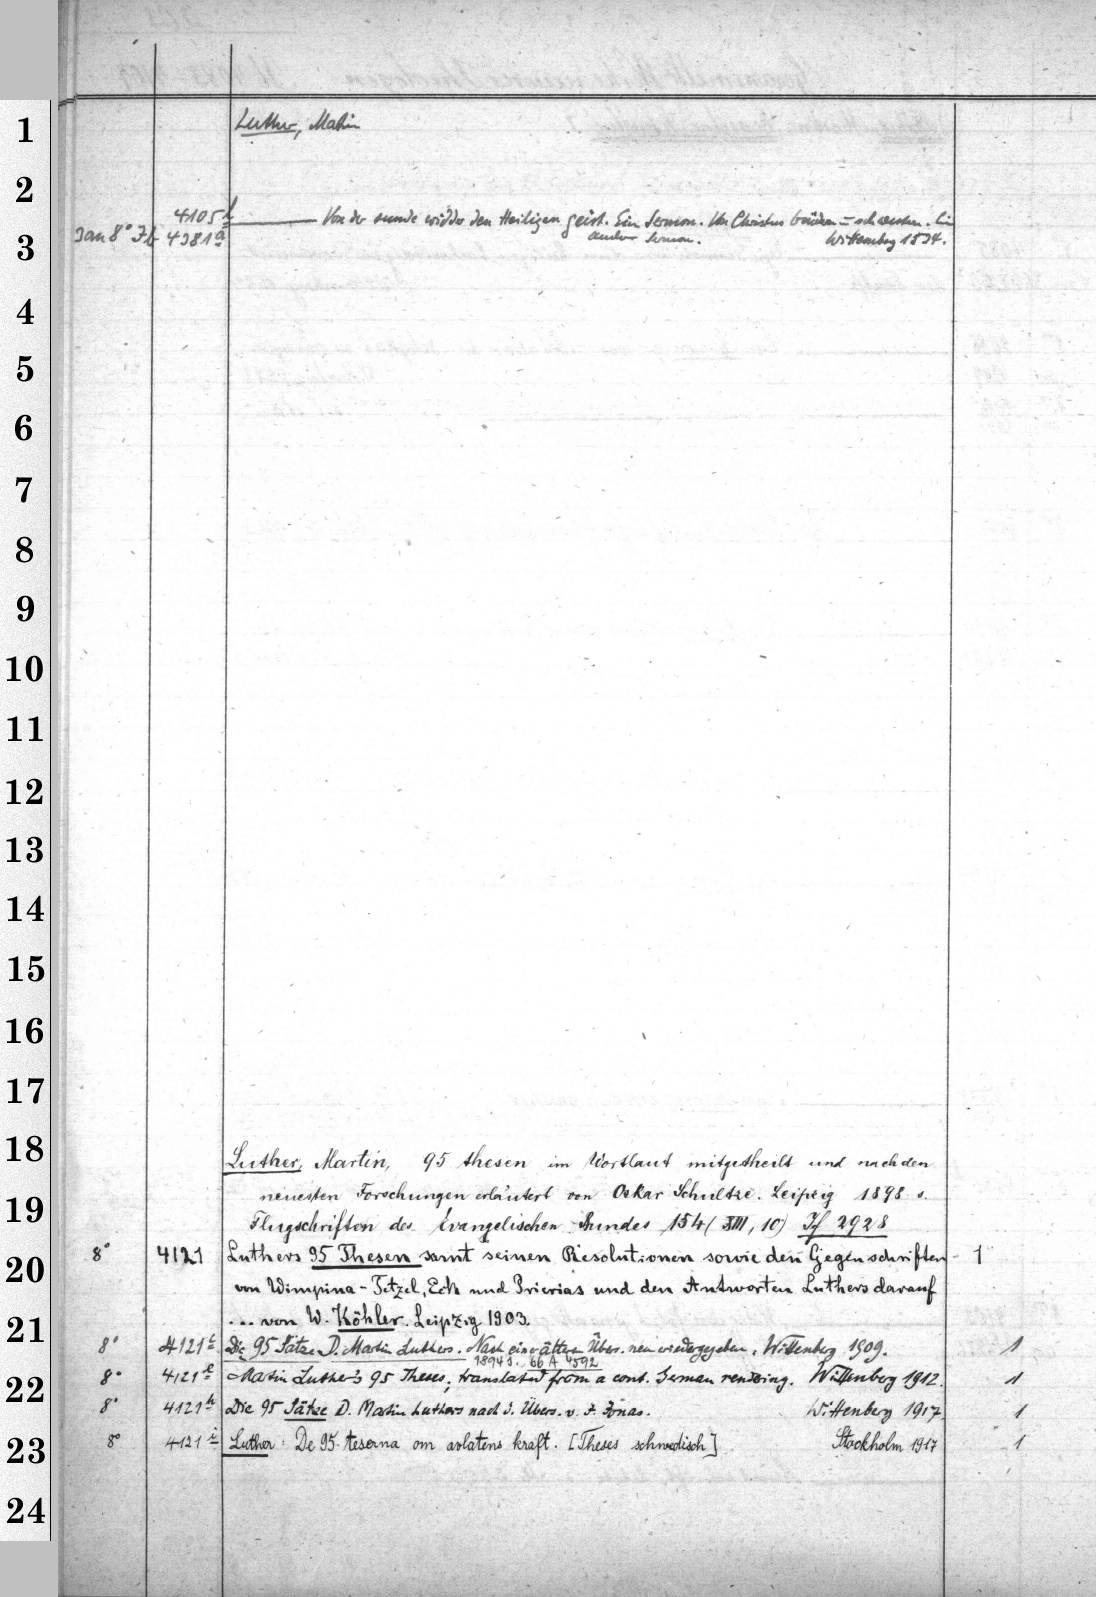 1
Luther, Martin
2
4105 f
4381 a ——— Von der sunde widder den Heiligen geist. Ein Sermon. Von Christus brüdern = schwestern. Ein
3
ander Sermon. Wittemberg 1534.
4
5
6
7
8
9
10
11
12
13
14
15
16
17
18
Luther, Martin, 95 thesen im Wortlaut mitgetheilt und nach den
neuesten Forschungen erläutert von Oskar Schultze. Leipzig 1898 s.
19
Flugschriften des Evangelischen Bundes 154 (XIII, 10) If 2928
8° 4121 Luthers 95 Thesen samt seinen Resolutionen sowie den Gegenschriften 1
20
von Wimpina-Tetzel, Eck und Prierias und den Antworten Luthers darauf
... von W. Köhler. Leipzig 1903.
21
8° 4121 c Die 95 Sätze D. Martin Luthers. Nach einer älteren Übers. neu wiedergegeben. Wittenberg 1909. 1
1894 s. 66 A 4592
8° 4121 e Martin Luther's 95 Theses, translated from a cont. German rendering. Wittenberg 1912. 1
22
8° 4121 h Die 95 Sätze D. Martin Luthers nach d. Übers. v. J. Jonas. Wittenberg 1917. 1
8° 4121 i Luther: De 95 teserna om avlatens kraft. [Theses schwedisch] Stockholm 1917 1
23
24